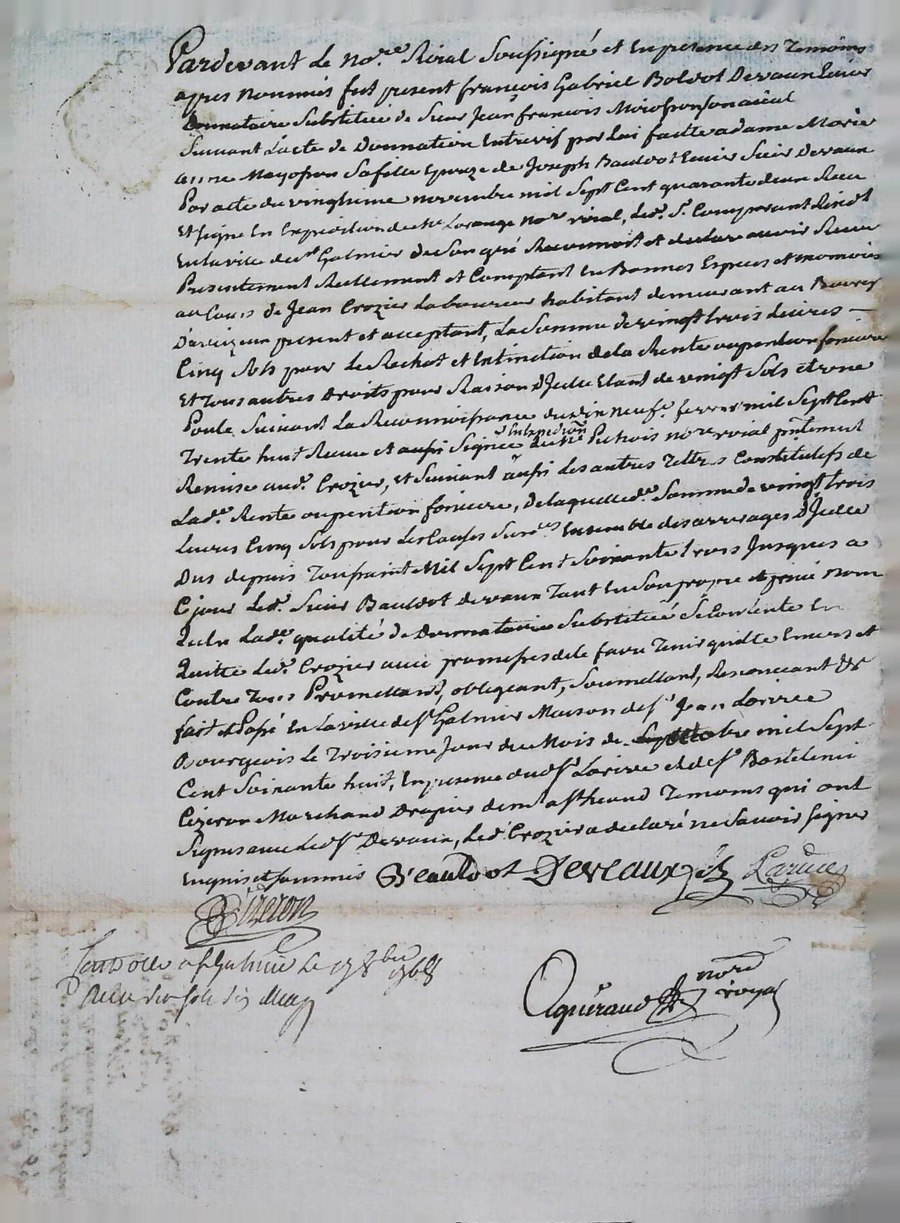 Pardevant Le No.re Roial Soussigné et En presence des Temoins
apres Nommés fut present françois Gabriel Boldot Devaux Ecuier
Donnataire Substitué de Sieur Jean françois
Suivant L'acte de Donnation Entrevif par Lui faitte a dame Marie
anne Sa fille Epouze de Joseph Bauldot Ecuier Sieur Devaux
Par acte du vingtieme novembre mil Sept Cent quarante deux Receu
Et Signé En Expedition de Me Larange No.re roial, Led. Sr. Comparant
En la ville de St Galmier de Son gré Reconnoit et declare avoir Receu
Presentement Reellement et Comptant En Bonnes Especes et monnoies
au Cours de Jean Crozier Laboureur habitant demeurant au Bourg
present et acceptant, La Somme de vingt trois Livres
Cinq Sols pour Le Rachet et Extinction de la Rente ou pention fonciere
Et Tous autres droits pour Raison D'Jcelle Etant de vingt Sols et une
Poule Suivant La Reconnoissance du dix neufe fevrier mil Sept Cent
Trente huit Receue et aussi Signée En Expedition de Me no.re roial pntement
Remise aud. Crozier, et Suivant aussi Les autres Tittres Constitutifs de
Lad.e Rente ou pention fonciere, De laquelle d.e Somme de vingt trois
Livres Cinq Sols pour Les Causes Sus.es Ensemble des arrerages D'Jcelle
Dus depuis Toussaint Mil Sept Cent Soixante trois Jusques a
Ce jour Led. Sieur Bauldot Devaux Tant En Son propre et privé nom
Qu'En Lad.e qualité de Donnataire Substitué Se Contente En
Quitte Led. Crozier avec promesses de le faire Tenir quitte Envers et
Contre Tous Promettant, obligeant, Soumettant, Renonceant &c
fait et Passé En La ville de St Galmier Maison de Sr Jean Larivee
Bourgeois Le Troisieme Jour du Mois de octobre mil Sept
Cent Soixante huit, En presence dud. Sr Larivee et de Sr Bartelemi
Cizeron Marchand Drapier dem.t a St heand Temoins qui ont
Signes avec Led. Sr Devaux, Led. Crozier a declaré ne Savoir Signer
Enquis et Sommés Beauldot Deveaux Larivee
Cizeron
Controllé a St Galmier Le 8bre 1768
Receu
Aguiraud no.re royal